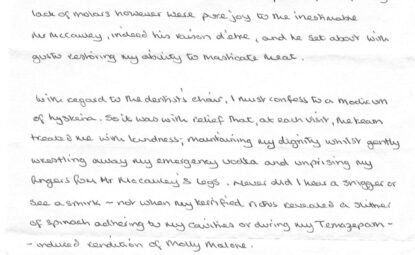 lack of molars however were pure joy to the inestimable
Mr McCauley, indeed his raison d'etre, and he set about with
gusto restoring my ability to masticate meat.
With regard to the dentist's chair, I must confess to a modicum
of hysteria. So it was with relief that, at each visit, the team
treated me with kindness; maintaining my dignity whilst gently
wrestling away my emergency vodka and unprising my
fingers from Mr McCauley's legs. Never did I hear a snigger or
see a smirk - not when my terrified rictus revealed a slither
of spinach adhering to my cavities or during my Temazepam-
-induced rendition of Molly Malone.